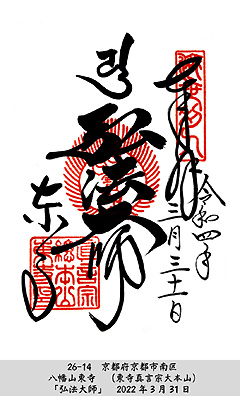 奉拝
令和四年
三月三十一日
弘法大師
東寺
26-14　京都府京都市南区
八幡山東寺　（東寺真言宗大本山）
「弘法大師」　2022年3月31日